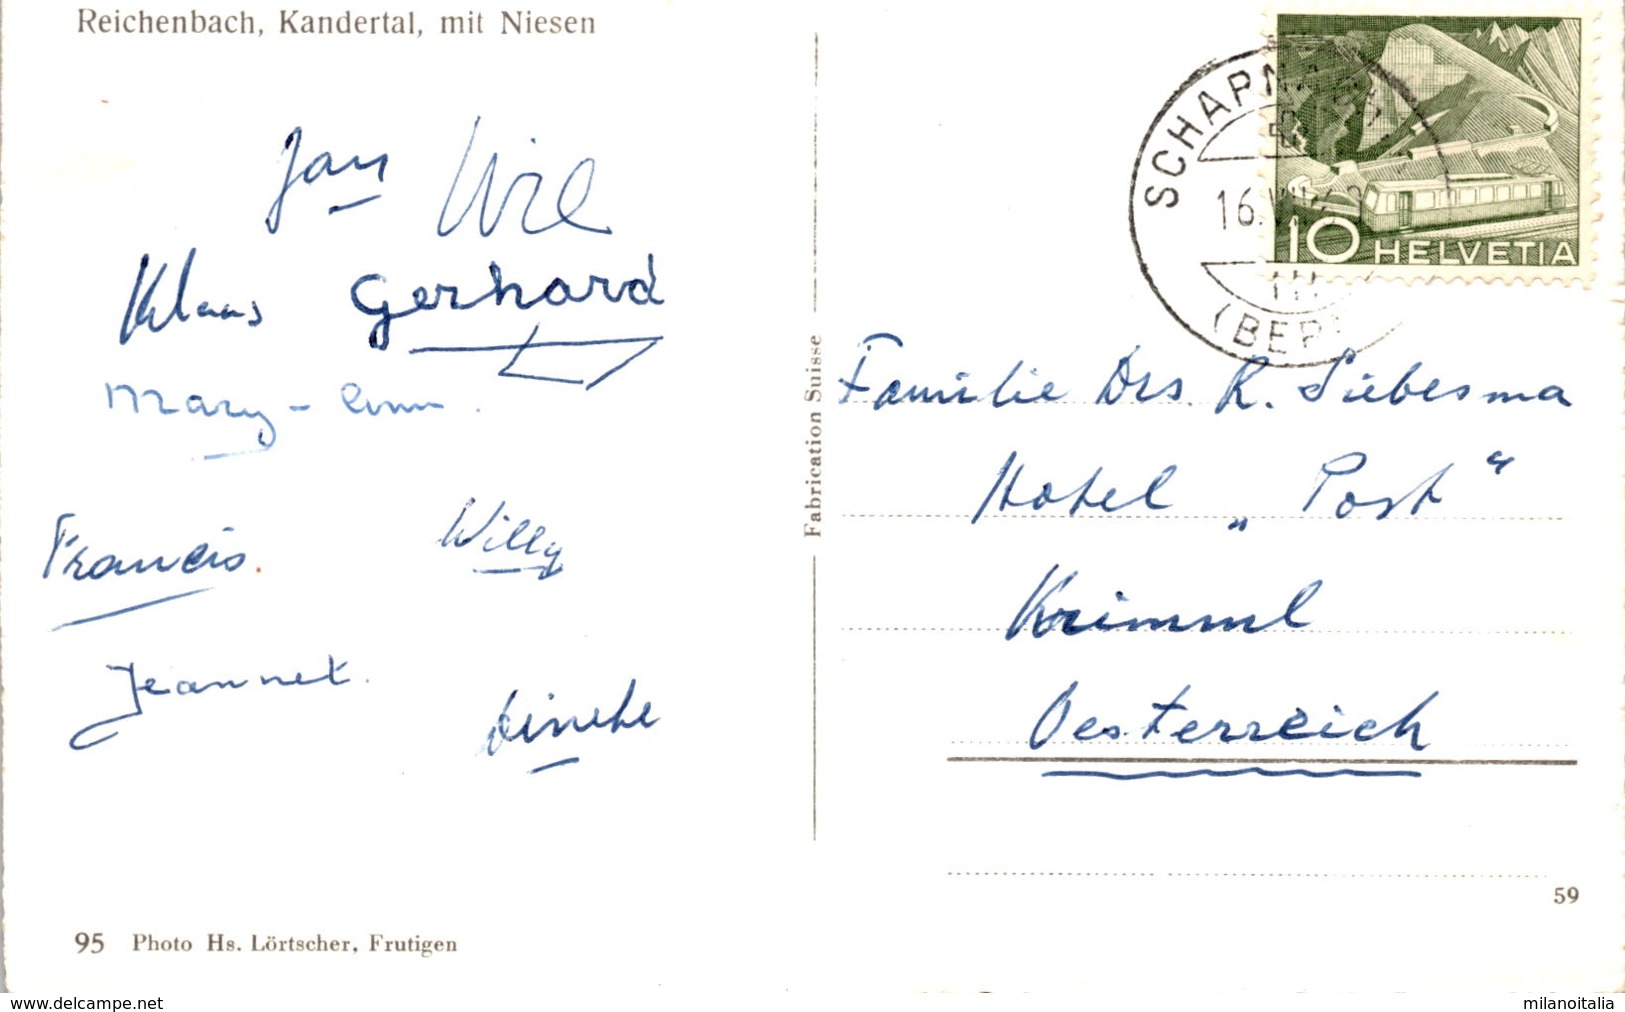 Reichenbach, Kandertal, mit Niesen
Jan
Wil
Klaas Gerhard
Mary-Ann.
Francis.
Willy
Jeannet.
Dineke
95 Photo Hs. Lörtscher, Frutigen
Fabrication Suisse
SCHARNACH
16.VII.
(BERN)
10 HELVETIA
Familie Drs. R. Siebesma
Hotel „Post“
Krimml
Oesterreich
59
www.delcampe.net
milanoitalia